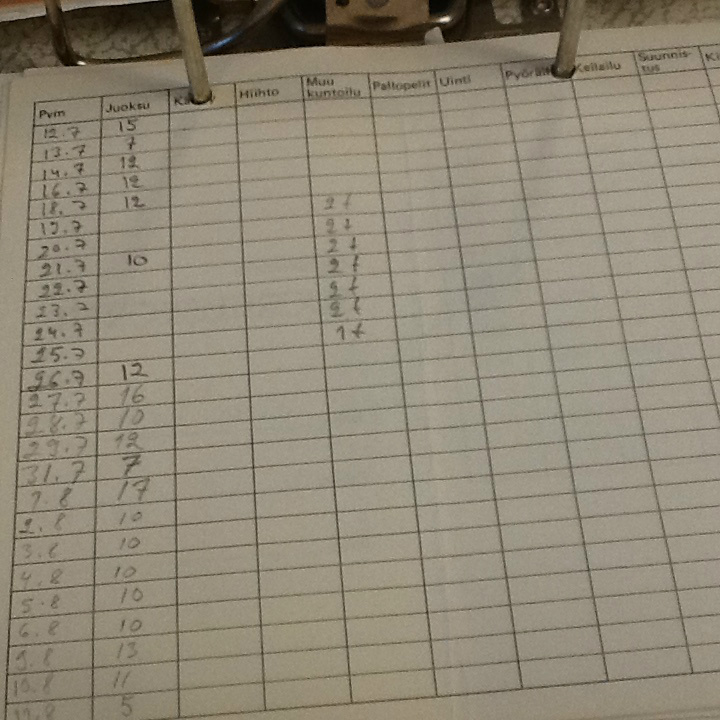 Pvm Juoksu Hiihto Muu kuntoilu Pallopelit Uinti Keilailu Suunnis-tus
12.7 15
13.7 7
14.7 12
16.7 12
18.7 12 2 t
19.7 2 t
20.7 2 t
21.7 10 2 t
22.7 2 t
23.7 2 t
24.7 1 t
25.7
26.7 12
27.7 16
28.7 10
29.7 12
31.7 7
1.8 17
2.8 10
3.8 10
4.8 10
5.8 10
6.8 10
9.8 13
10.8 11
5